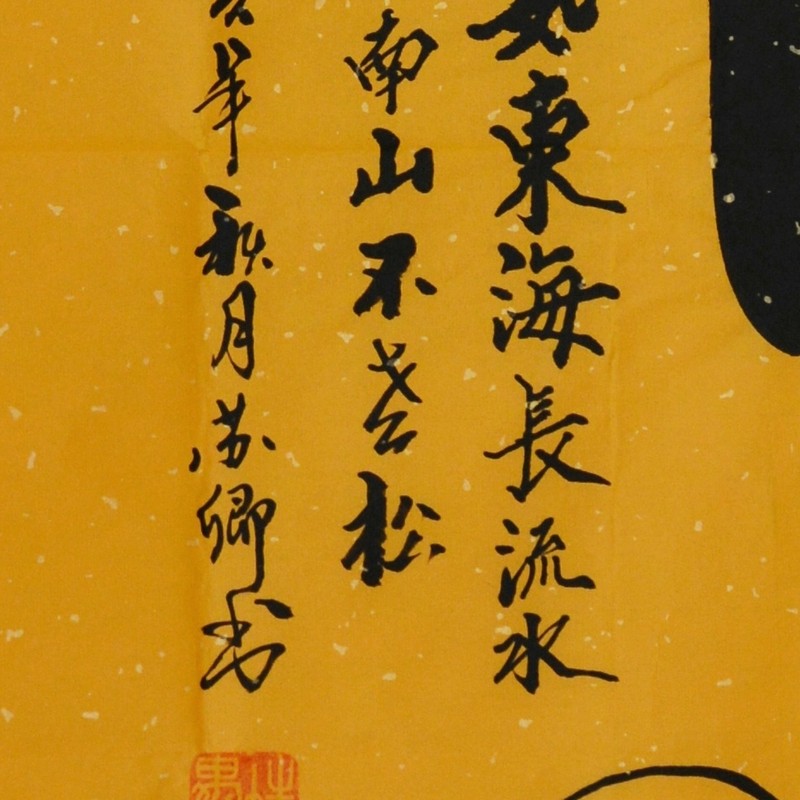 如東海長流水
南山不老松
年秋月苏卿书